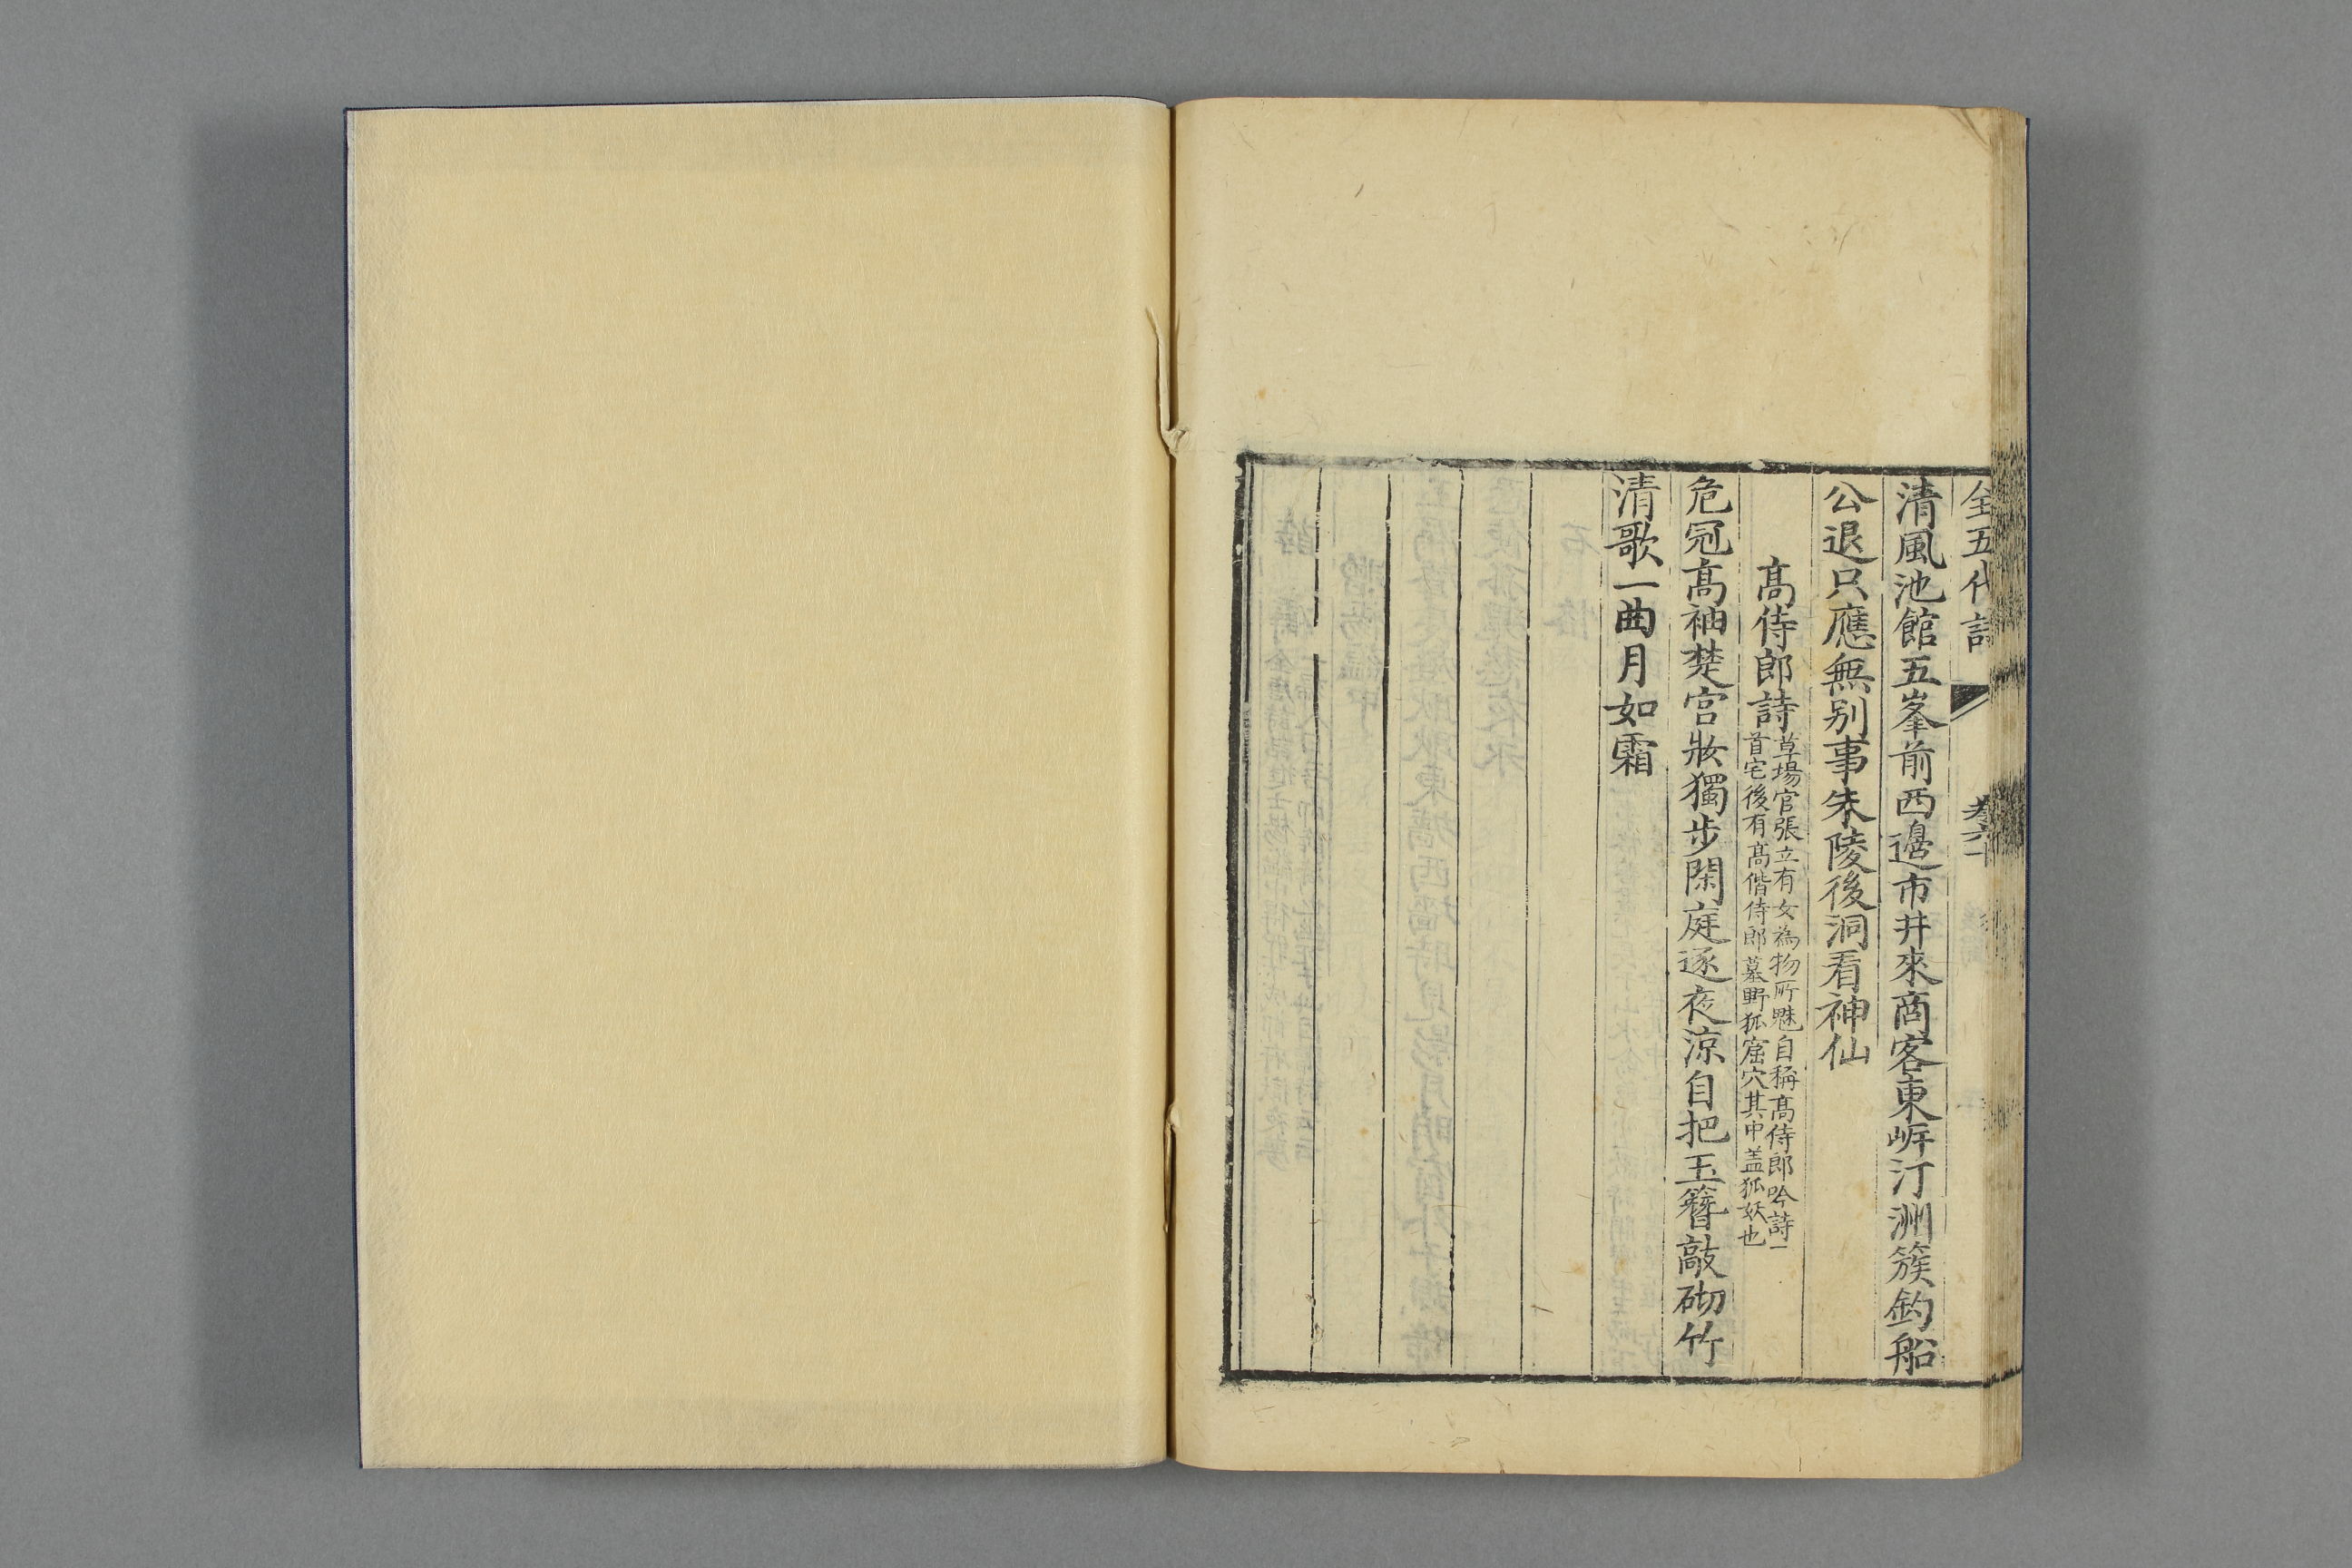 全五代詩 卷六十
清風池館五峯前西邊市井來商客東㟁汀洲簇釣船
公退只應無别事朱陵後洞看神仙
髙侍郎詩
草場官張立有女為物所魅自稱髙侍郎吟詩一
首宅後有髙偕侍郎墓野狐窟穴其中盖狐妖也
危冠髙袖楚宫妝獨步閑庭逐夜涼自把玉簪敲砌竹
清歌一曲月如霜